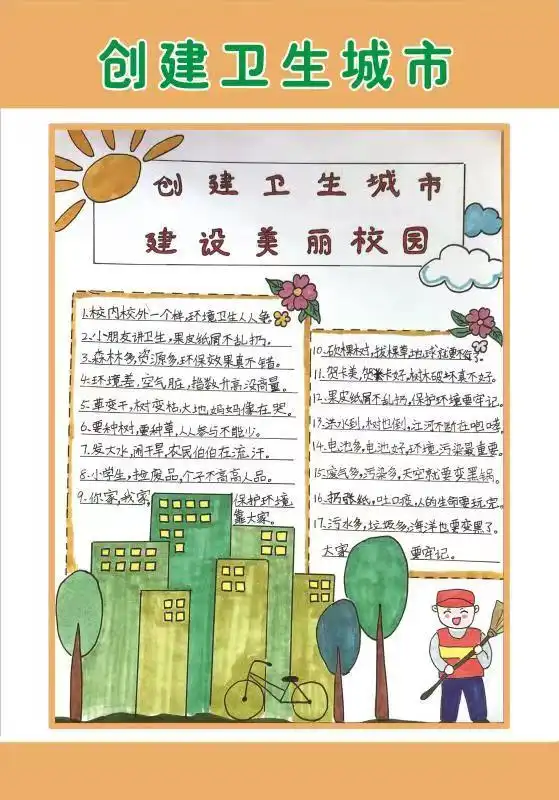 创建卫生城市
创建卫生城市
建设美丽校园
1.校内校外一个样,环境卫生人人争。
2.小朋友讲卫生,果皮纸屑不乱扔。
3.森林多,资源多,环保效果真不错。
4.环境差,空气脏,指数升高没商量。
5.草变干,树变枯,大地妈妈像在哭。
6.要种树,要种草,人人参与不能少。
7.发大水,闹干旱,农民伯伯在流汗。
8.小学生,捡废品,个子不高高人品。
9.你家,我家,保护环境
靠大家。
10.砍棵树,拔棵草,地球在
11.贺卡美,贺卡好,树木破坏真不好。
12.果皮纸屑不乱扔,保护环境要牢记。
13.洪水到,树也倒,江河不断在咆哮。
14.电池多,电池好,环境污染最重要。
15.废气多,污染多,天空就要变黑锅。
16.扔张纸,吐口痰,人的生命要玩完。
17.污水多,垃圾多,海洋也要变黑了。
大家 要牢记。